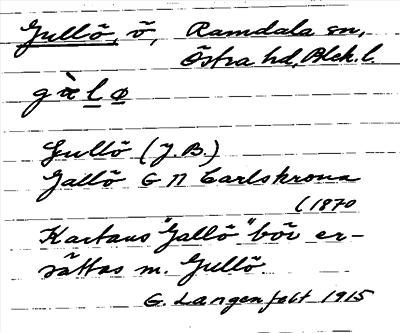 Gullö, ö, Ramdala sn,
Östra hd, Blek. l.
Gullö (J.B.)
Jallö G N Carlskrona
(1870
Kartans "Jallö" bör er-
sättas m. Gullö.
G. Langenfelt 1915